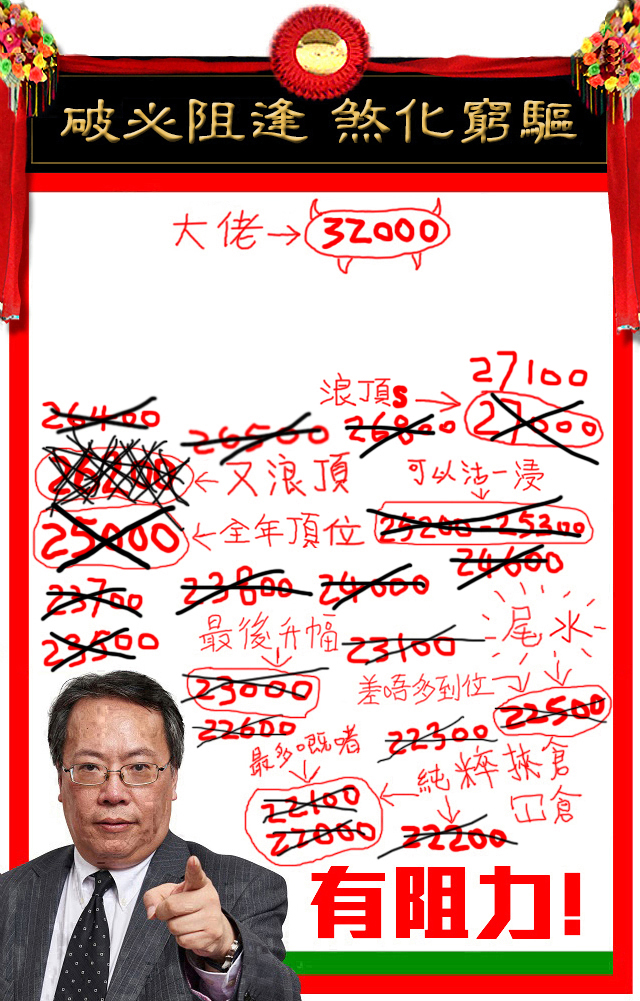 破必阻逢 煞化窮驅
大佬→32000
27100
浪頂s→27000
26400
26500
26800
26200←又浪頂
可以沽一浸
25000←全年頂位
25200-25300
24600
23700
23800
24000
23500
最後升幅
23100
尾水
23000
差唔多到位
22500
22600
22300
最多嘅者
22100
22000
←純粹挾倉
冚倉
22200
有阻力!